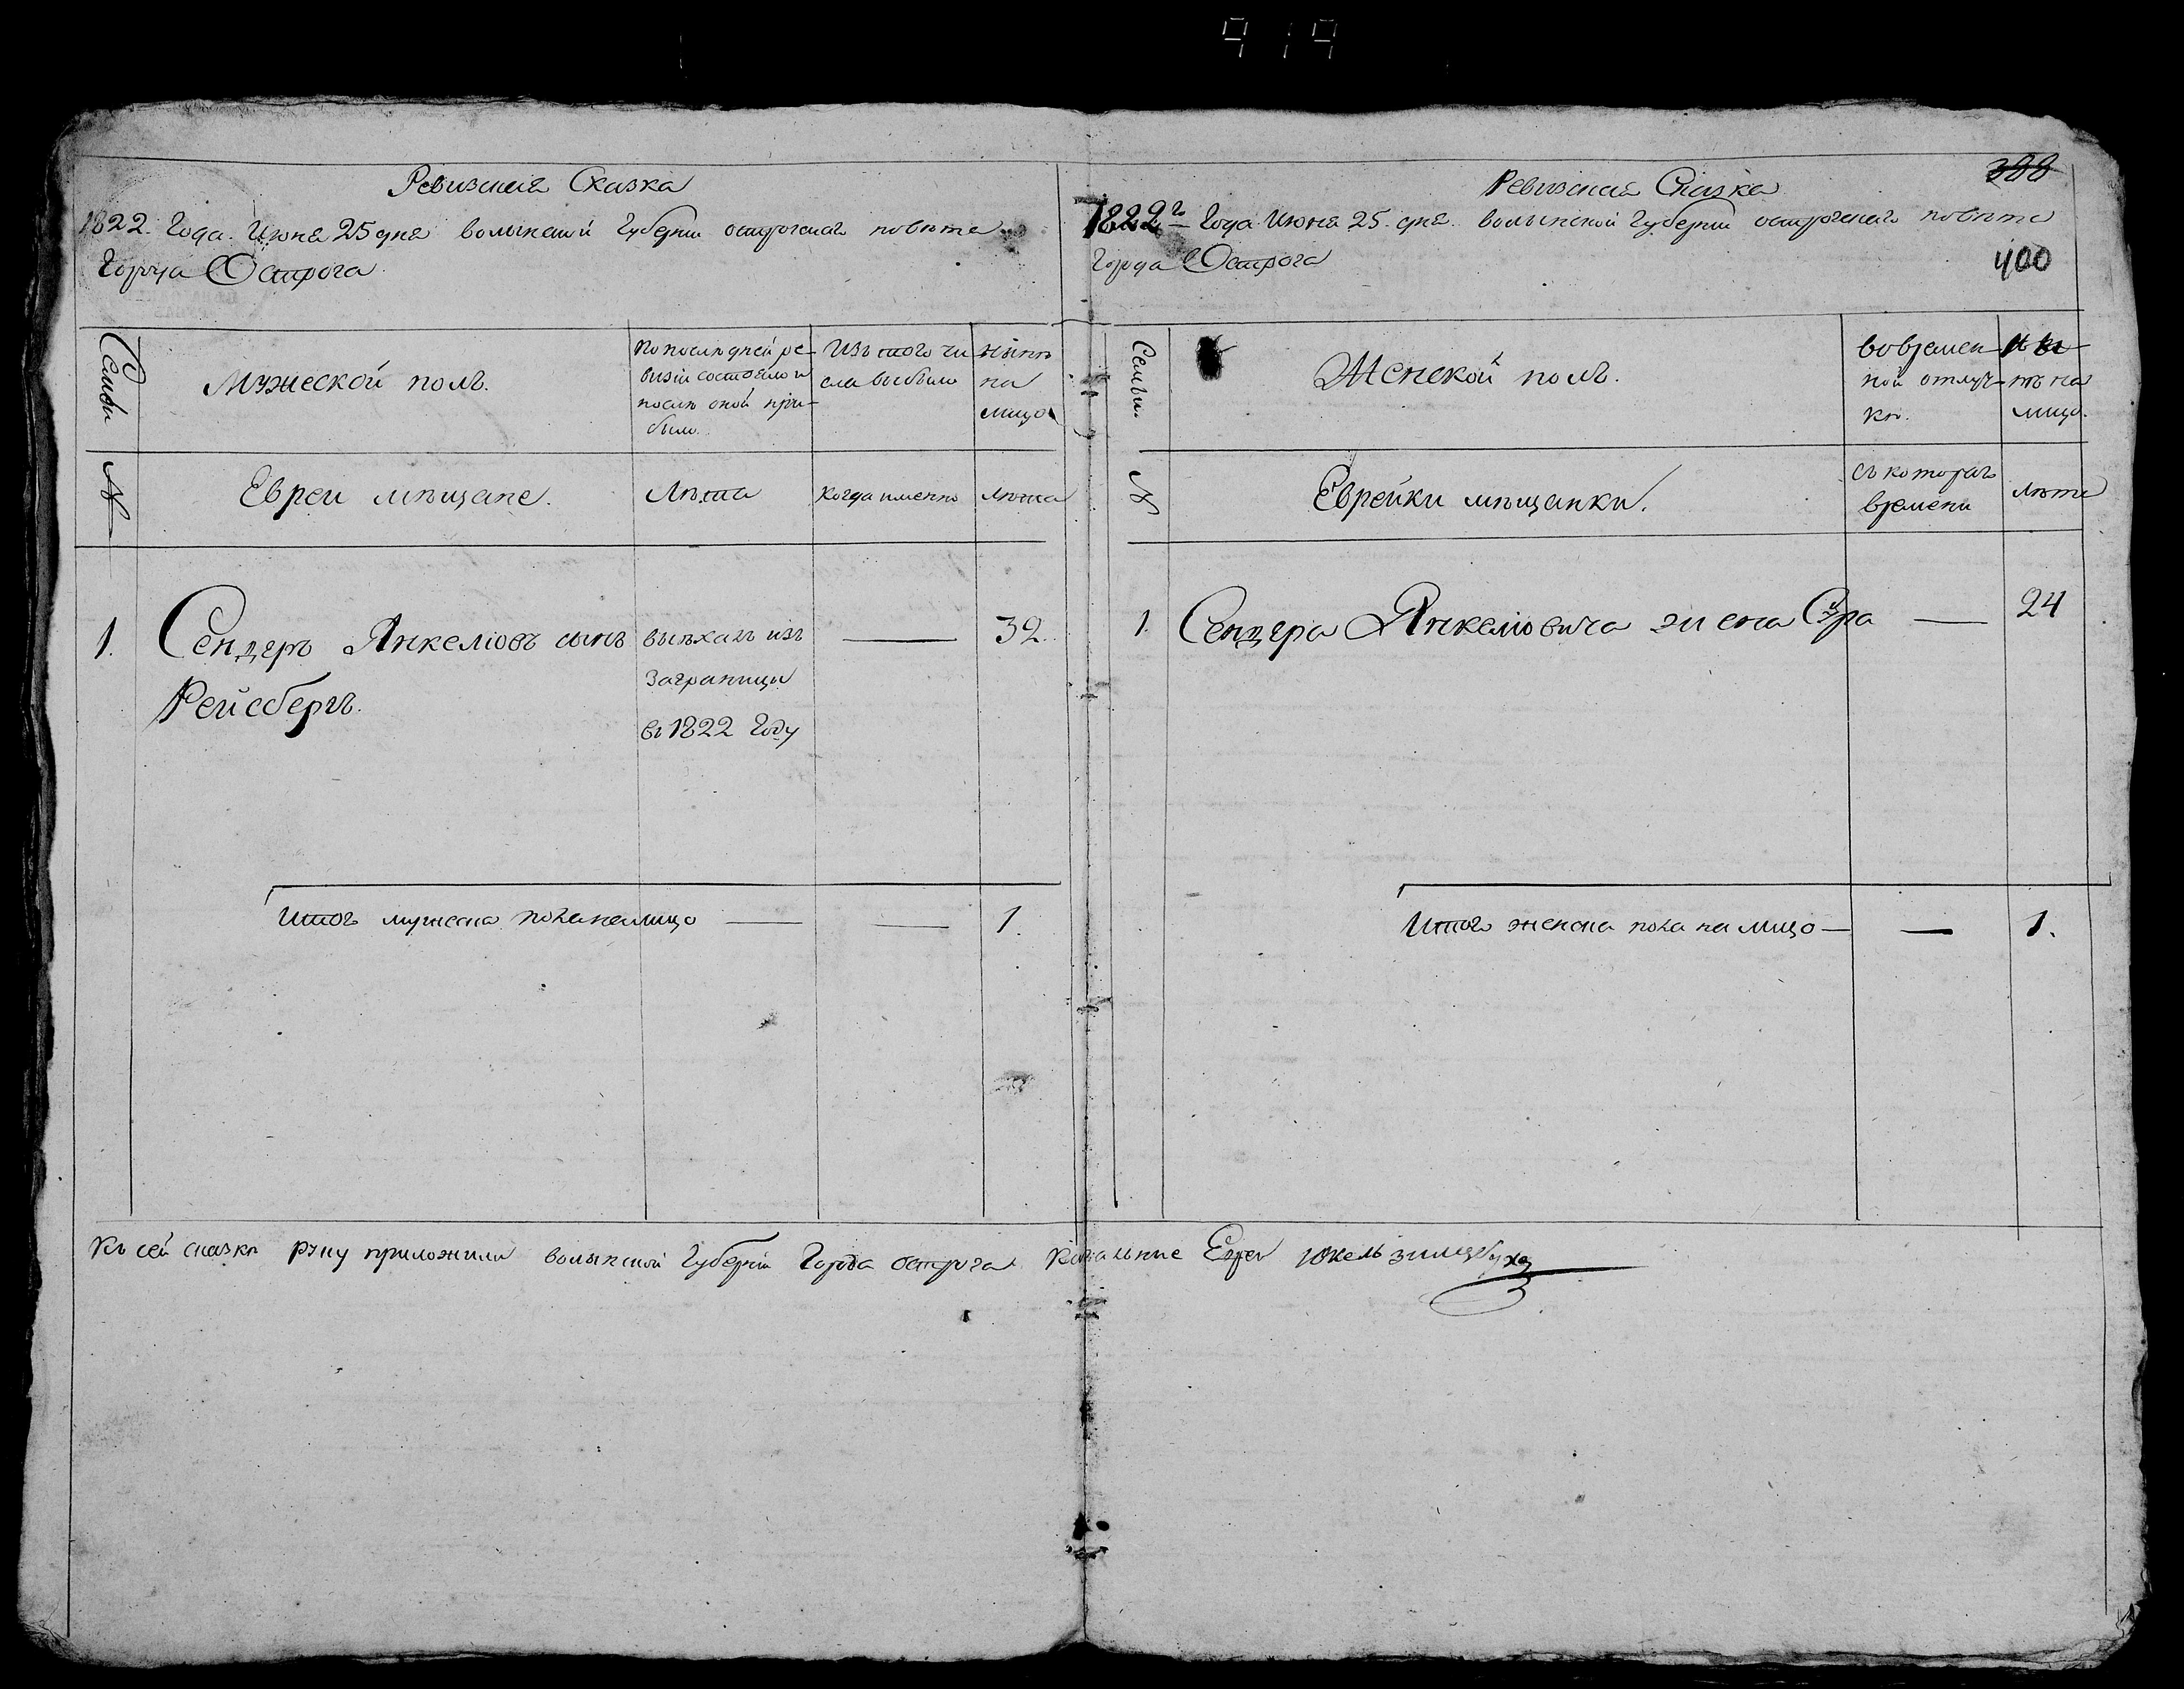 919
Ревизская Сказка
1822. Года. Июня 25 дня волынской губернии острожскаго повета
Города Острога
Семьи
Мужеской полъ.
По последней ре-
визіи состояло и
после оной при-
было.
Изъ того чи-
сла выбыло
ныне
на
лицо
№
Евреи мещане.
Лета
когда именно
лета
1.
Сендеръ Янкеліовъ сынъ
Рейсбергъ.
выехалъ изъ
Заграницы
въ 1822 Году
32.
Итогъ мужеска пола налицо
1.
Ревизская Сказка
388
1822г. Года Июня 25. дня. волынской губернии острожскаго повета
Города Острога
400
Семьи.
Женской полъ.
вовремен-
ной отлуч-
ке.
ны-
те на
лицо.
№
Еврейки мещанки.
съ котораго
времени
лета
1.
Сендера Янкеліовича жена Сура
24
Итого женска пола на лицо
1.
Къ сей сказке руку приложили волынской губерніи Города острога Кагальные Евреи Юкель